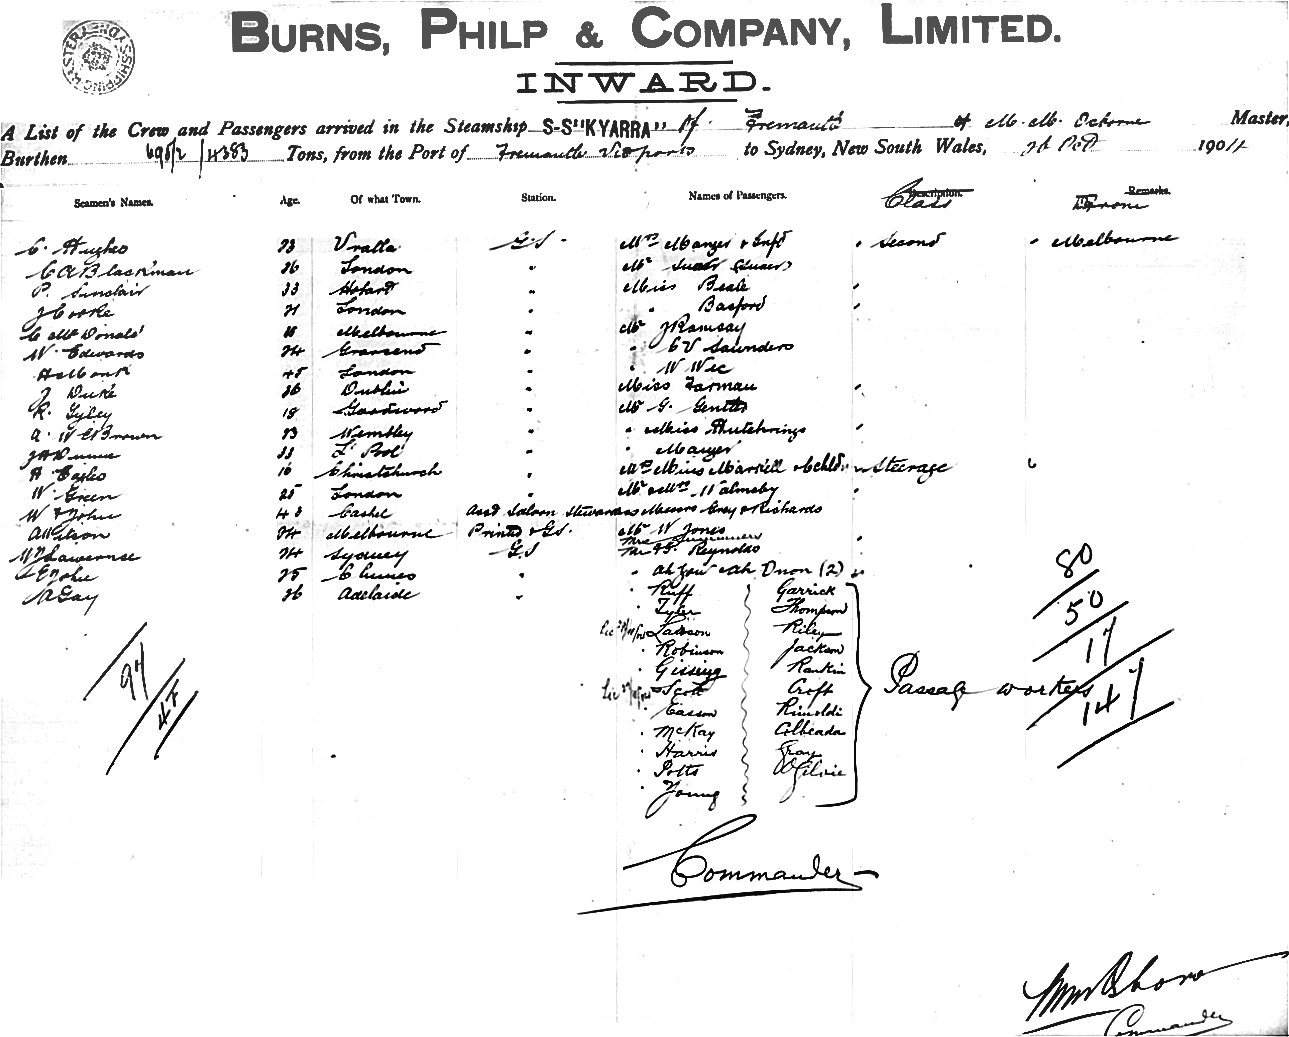 BURNS, PHILP & COMPANY, LIMITED.
INWARD.
A List of the Crew and Passengers arrived in the Steamship S-S "KYARRA" of Fremantle of Osborne Master,
Burthen 6952/4383 Tons, from the Port of Fremantle via ports to Sydney, New South Wales, Oct 1904
Seamen's Names. Age. Of what Town. Station. Names of Passengers. Class From
C. Hughes 23 Uralla G.S. Mrs Manger & Inft " Second " Melbourne
C A Blackman 26 London " Mr
P. Sinclair 33 Hobart " Miss Beale "
J Cooke 21 London " " Basford "
C McDonald 18 Melbourne " Mr J Ramsay
W. Edwards 24 Gravesend " " C V Saunders
45 London " " W
J Duke 26 Dublin " Miss Farman "
R. Tyley 19 " Mr G.
A. W C Brown 23 Wembley " " Miss Hutchings "
33 L'Pool " " Manger
H. Eagles 16 Christchurch " Steerage "
W. Green 25 London " Mr & Mrs Walmsby "
W St John 43 Cashel Asst Saloon Stewardess Messrs Grey & Richards
A Wilson 24 Melbourne Printer & G.S. Mr W Jones
W Lawrence 24 Sydney G.S Reynolds "
25 Clunes " " (2) "
A Gay 26 Adelaide " " Ruff Garrick
" Tyler Thompson
Lic Lawson Riley
" Robinson Jackson
" Gissing Rankin
Lic " Scott Croft
" Easson Rinoldi
" McKay
" Harris Gray
" Potts Ogilvie
" Young
Passage workers
80
50
17
147
94
47
Commander
Commander